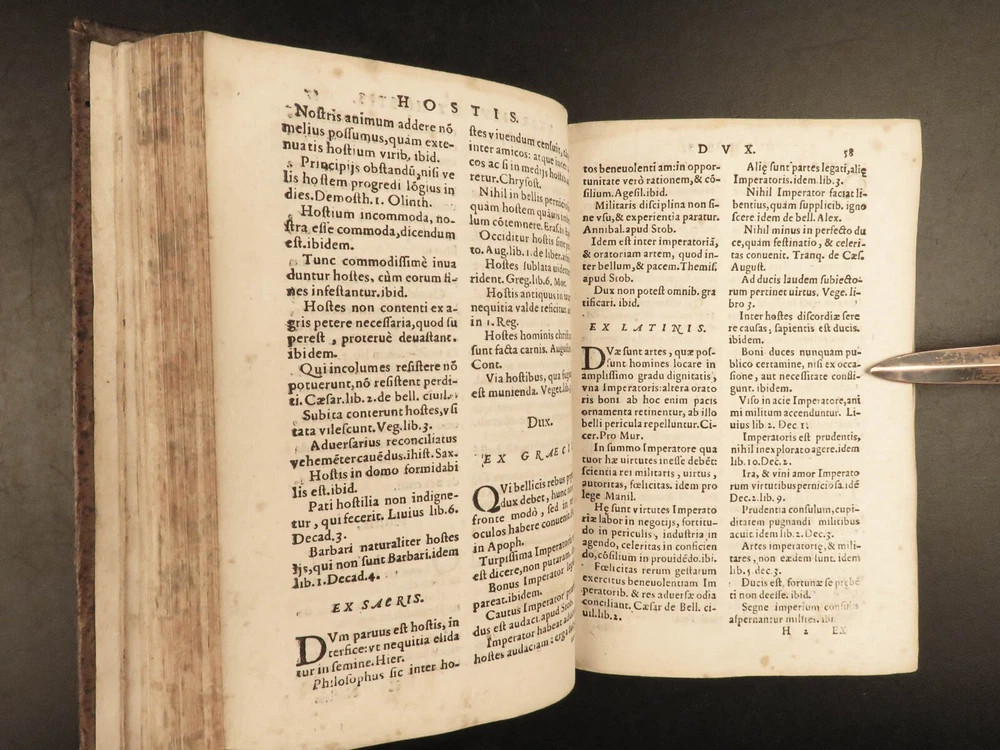 HOSTIS.
Noſtris animum addere nõ
melius poſſumus,quàm exte-
nuatis hoſtium virib, ibid.
Principijs obſtandū,niſi ve
lis hoſtem progredi lõgius in
dies.Demoſth.1. Olinth.
Hoſtium incommoda, no-
ſtra eſſe commoda,dicendum
eſt.ibidem.
Tunc commodiſſimè inua
duntur hoſtes, cùm eorum fi-
nes infeſtantur.ibid.
Hoſtes non contenti ex a-
gris petere neceſſaria,quod ſu
pereſt , proteruè deuaſtant.
ibidem.
Qui incolumes reſiſtere nõ
potuerunt,nõ reſiſtent perdi-
ti. Cæſar.lib.2.de bell. ciuil.
Subita conterunt hoſtes,vſi
tata vileſcunt.Veg.lib.3.
Aduerſarius reconciliatus
vehemẽter cauẽdus.ihiſt.Sax.
Hoſtis in domo formidabi
lis eſt.ibid.
Pati hoſtilia non indigne-
tur , qui fecerit. Liuius lib.6.
Decad.3.
Barbari naturaliter hoſtes
ijs,qui non ſunt Barbari.idem
lib.1.Decad.4.
EX SACRIS.
DVm paruus eſt hoſtis, in
terfice:vt nequitia elida
tur in ſemine.Hier.
Philoſophus ſic inter ho-
ſtes viuendum cenſuit,
inter amicos: atque inter
cos ac ſi in medijs hoſtib
retur.Chryſoſt.
Nihil in bellis pernicio
quàm hoſtem quãuis
lum cõtemnere.
Occiditur hoſtis
to. Aug.lib.1.de liber.
Hoſtes ſublata
rident. Greg.lib.6. Mor.
Hoſtis antiquus in
nequitia valde reficitur
in 1.Reg.
Hoſtes hominis
ſunt facta carnis. Auguſt
Cont.
Via hoſtibus, qua
eſt munienda. Veget.lib
Dux.
EX GRAECI
QVi bellicis rebus
dux debet, hunc
fronte modò , ſed
oculos habere conuenit.
in Apoph.
Turpiſſima Imperatori
eſt dicere,non putaram.
Bonus Imperator
pareat.ibidem.
Cautus Imperator
dus eſt audaci.apud Stob.
Imperator habeat
hoſtes audaciam:erga
DVX. 58
tos beneuolentiam:in oppor-
tunitate verò rationem,& cõ-
ſilium.Ageſil.ibid.
Militaris diſciplina non ſi-
ne vſu,& experientia paratur.
Annibal.apud Stob.
Idem eſt inter imperatoriã,
& oratoriam artem, quod in-
ter bellum,& pacem.Themiſ.
apud Stob.
Dux non poteſt omnib. gra
tificari. ibid.
EX LATINIS.
DVæ ſunt artes , quæ poſ-
ſunt homines locare in
ampliſſimo gradu dignitatis,
vna Imperatoris:altera orato
ris boni ab hoc enim pacis
ornamenta retinentur, ab illo
belli pericula repelluntur.Ci-
cer.Pro Mur.
In ſummo Imperatore qua
tuor hæ uirtutes ineſſe debẽt:
ſcientia rei militaris , uirtus ,
autoritas, fœlicitas. idem pro
lege Manil.
Hę ſunt virtutes Imperato
riæ labor in negotijs, fortitu-
do in periculis, induſtria in
agendo, celeritas in conficien
do,cõſilium in prouidẽdo.ibi.
Fœlicitas rerum geſtarum
exercitus beneuolentiam Im
peratorib. & res aduerſæ odia
conciliant. Cæſar de Bell. ci-
uil.lib.2.
Alię ſunt partes legati,alię
Imperatoris.idem.lib.3.
Nihil Imperator faciat li-
bentius,quàm ſupplicib. igno
ſcere idem de bell. Alex.
Nihil minus in perfecto du
ce,quàm feſtinatio, & celeri-
tas conuenit. Tranq. de Cæſ.
Auguſt.
Ad ducis laudem ſubiecto-
rum pertinet uirtus. Vege. li-
bro 3.
Inter hoſtes diſcordiæ ſere
re cauſas , ſapientis eſt ducis.
ibidem.
Boni duces nunquam pu-
blico certamine, niſi ex occa-
ſione, aut neceſſitate confli-
gunt. ibidem.
Viſo in acie Imperatore,ani
mi militum accenduntur. Li-
uius lib.2. Dec 1.
Imperatoris eſt prudentis,
nihil inexplorato agere.idem
lib.10.Dec.2.
Ira, & vini amor Imperato
rum virtutibus pernicioſa.idẽ
Dec.2.lib. 9.
Prudentia conſulum,cupi-
ditatem pugnandi militibus
acuit.idem lib.2.Dec.3.
Artes imperatorię,& mili-
tares , non eædem ſunt. idem
lib.5.dec.3.
Ducis eſt, fortunæ ſe prębẽ
ti non deeſſe. ibid.
Segne imperium conſulis
aſpernantur milites.ibi
H 2 EX